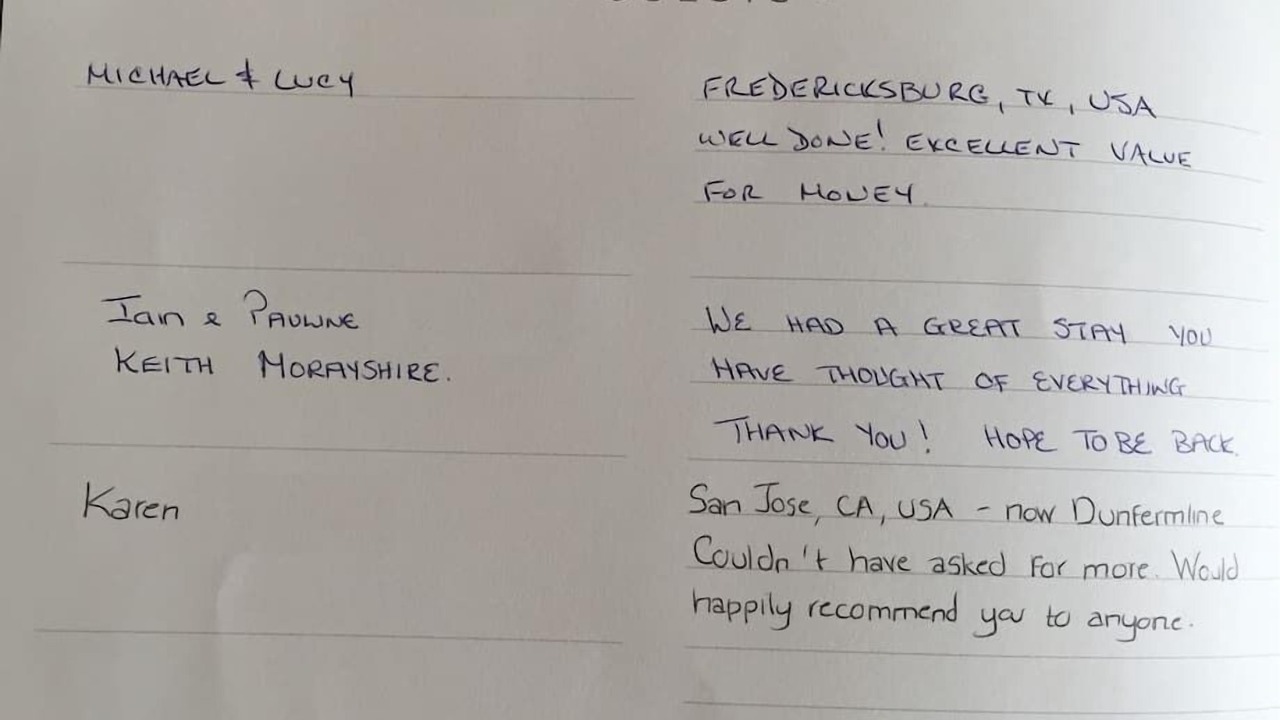 MICHAEL & LUCY
FREDERICKSBURG, TX, USA
WELL DONE! EXCELLENT VALUE
FOR MONEY.
Ian & PAULINE
KEITH MORAYSHIRE.
WE HAD A GREAT STAY YOU
HAVE THOUGHT OF EVERYTHING
THANK YOU! HOPE TO BE BACK.
Karen
San Jose, CA, USA - now Dunfermline
Couldn't have asked for more. Would
happily recommend you to anyone.